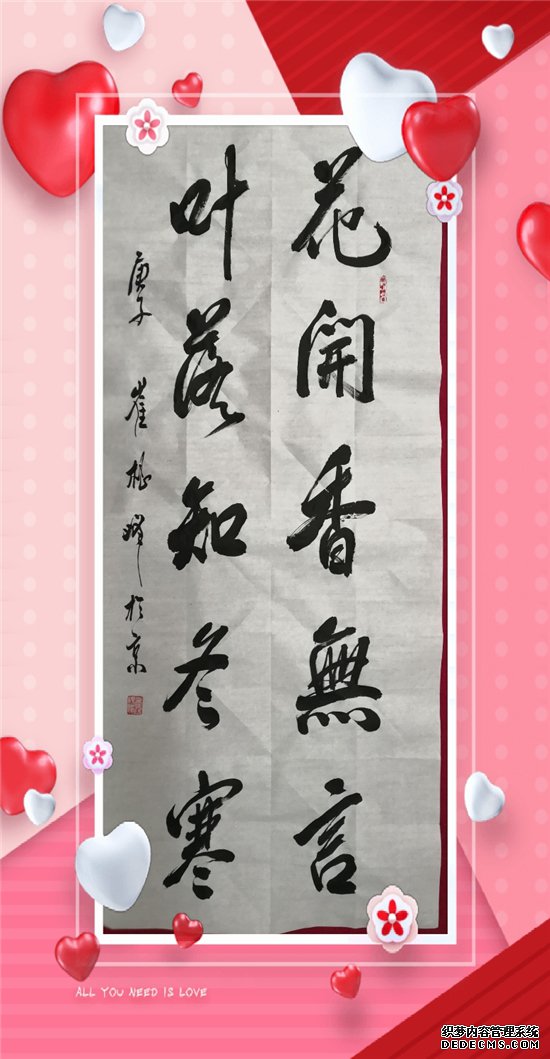 花開香無言
叶落知冬寒
庚子 崔柏峰於京
ALL YOU NEED IS LOVE
织梦内容管理系统
DEDECMS.COM